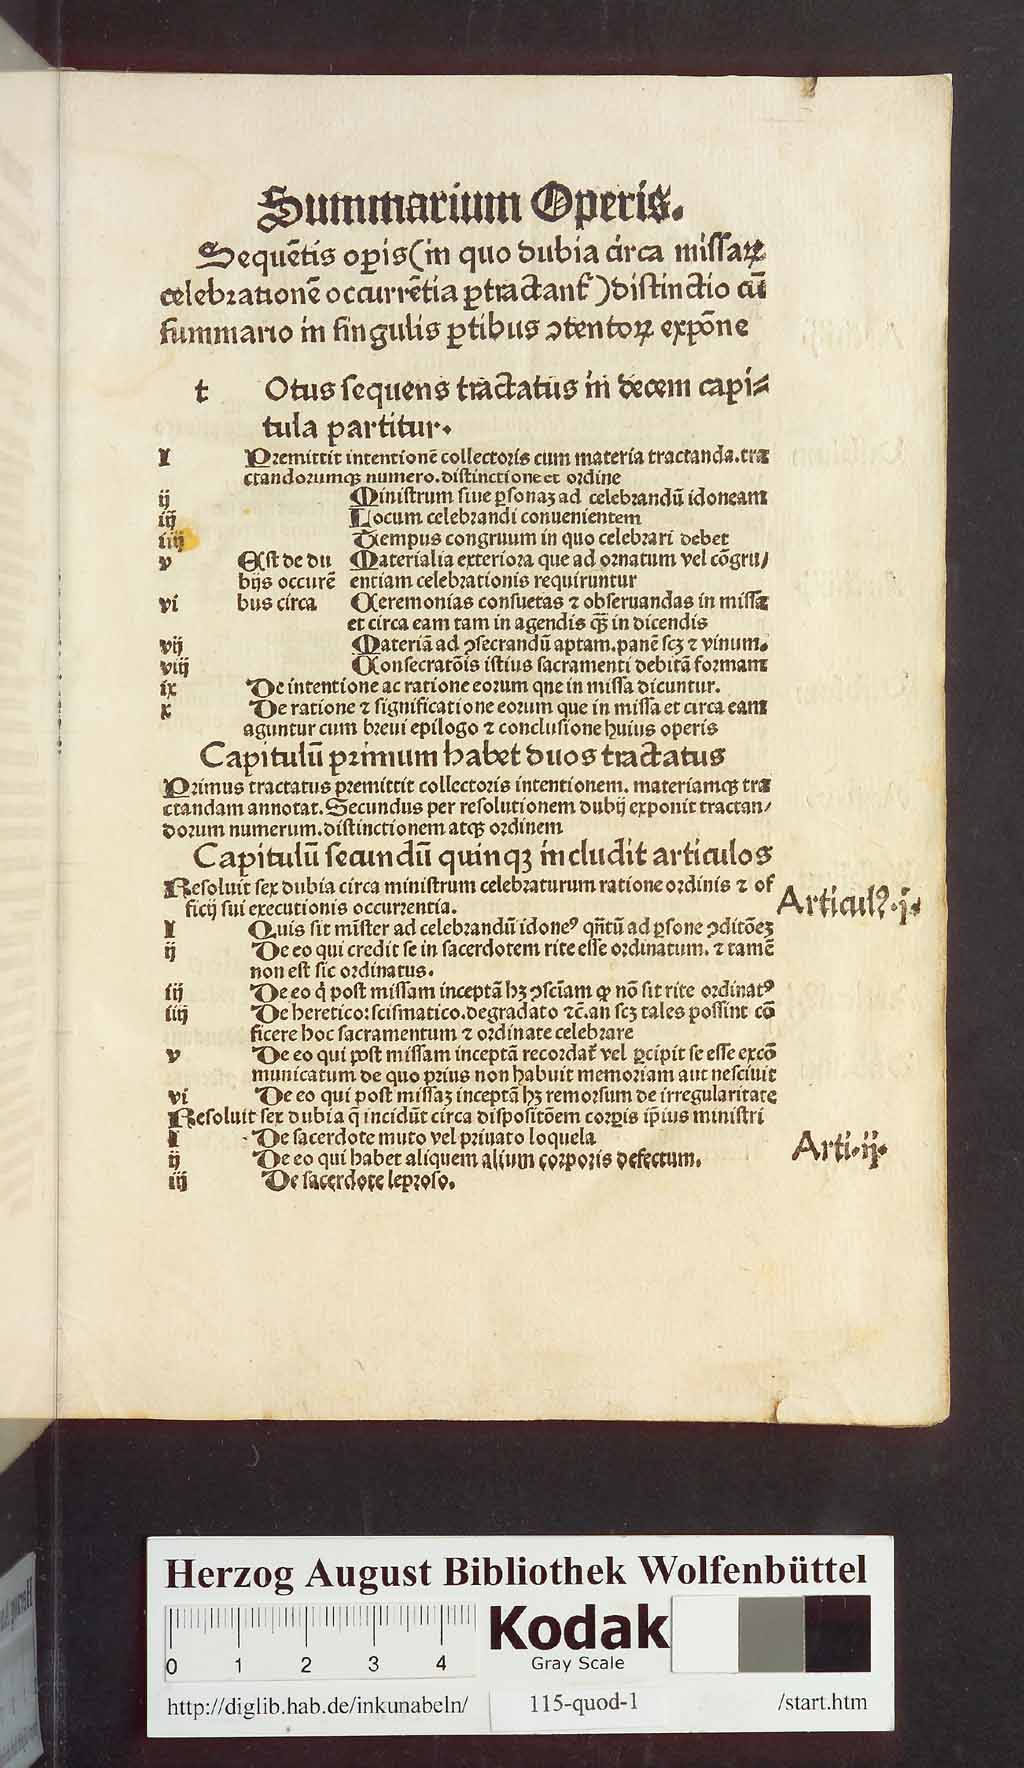 Summarium Operis.
Sequētis oꝑis(in quo dubia circa missaꝝ
celebrationē occurrētia ꝑtractant᷑)distinctio cū
summario in singulis ꝑtibus ꝯtentoꝝ expōne
t Otus sequens tractatus in decem capi⸗
tula partitur.
I Premittit intentionē collectoris cum materia tractanda.tra
ctandorumqꝫ numero.distinctione et ordine
ij Ministrum siue ꝑsonaꝫ ad celebrandū idoneam
iij Locum celebrandi conuenientem
iiij Tempus congruum in quo celebrari debet
v Est de du Materialia exteriora que ad ornatum vel cōgru/
bijs occurē entiam celebrationis requiruntur
vi bus circa Ceremonias consuetas ⁊ obseruandas in missa
et circa eam tam in agendis qꝫ̄ in dicendis
vij Materiā ad ꝯsecrandū aptam.panē scꝫ ⁊ vinum.
viij Consecratōis istius sacramenti debitā formam
ix De intentione ac ratione eorum qne in missa dicuntur.
x De ratione ⁊ significatione eorum que in missa et circa eam
aguntur cum breui epilogo ⁊ conclusione huius operis
Capitulū primum habet duos tractatus
Primus tractatus premittit collectoris intentionem. materiamqꝫ tra
ctandam annotat. Secundus per resolutionem dubij exponit tractan/
dorum numerum.distinctionem atqꝫ ordinem
Capitulū secundū quinqꝫ includit articulos
Resoluit sex dubia circa ministrum celebraturum ratione ordinis ⁊ of
ficij sui executionis occurrentia.
Articulꝰ.j.
I Quis sit mīster ad celebrandū idoneꝰ qn̄tū ad ꝑsone ꝯditōeꝫ
ij De eo qui credit se in sacerdotem rite esse ordinatum. ⁊ tamē
non est sic ordinatus.
iij De eo q̇ post missam inceptā hꝫ ꝯsciam ꝙ nō sit rite ordinatꝰ
iiij De heretico: scismatico.degradato ⁊c̄.an scꝫ tales possint cō
ficere hoc sacramentum ⁊ ordinate celebrare
v De eo qui post missam inceptā recordat᷑ vel ꝑcipit se esse excō
municatum de quo prius non habuit memoriam aut nesciuit
vi De eo qui post missaꝫ inceptā hꝫ remorsum de irregularitate
Resoluit sex dubia q̄ incidūt circa dispositōem corꝑis ip̄ius ministri
I De sacerdote muto vel priuato loquela
Arti.ij.
ij De eo qui habet aliquem alium corporis defectum.
iij De sacerdote leproso.
Herzog August Bibliothek Wolfenbüttel
0 1 2 3 4
Kodak
Gray Scale
http://diglib.hab.de/inkunabeln/ 115-quod-1 /start.htm